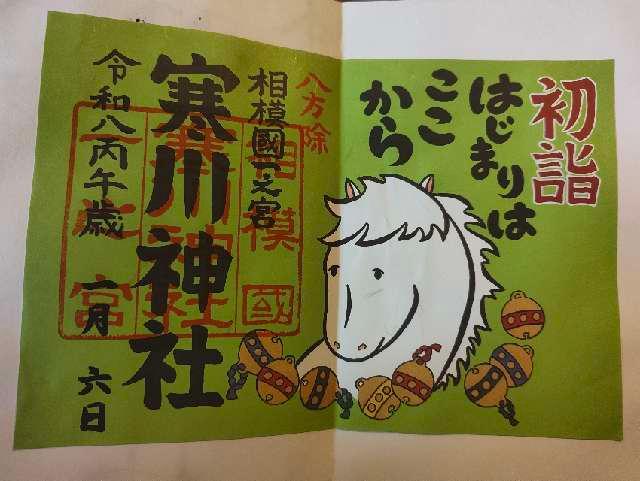 初詣
はじまりは
ここ
から
八方除
相模國一之宮
寒川神社
令和八丙午歳 一月 六日
相模國
寒川神社
一之宮